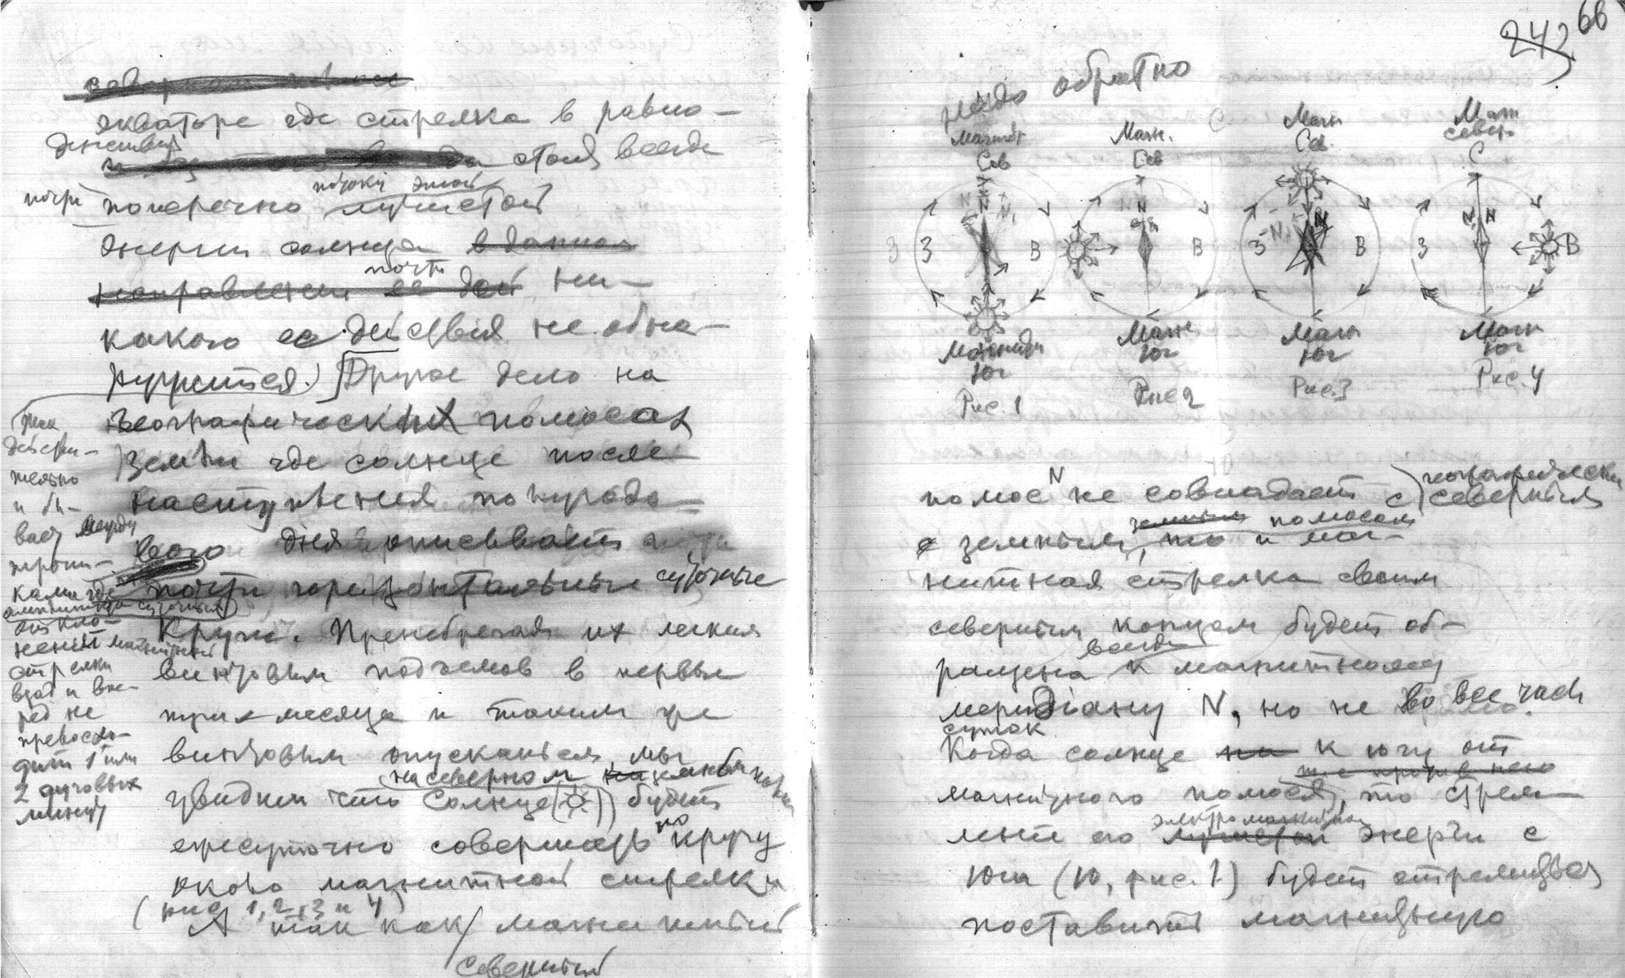 экваторе где стрелка в равно-
денствия стоя всегда
почти поперечно потоку этой лучистой
энергии солнца в данном
направлении ее почти ни-
какого ее действия не обна-
ружится.) Другое дело на
географических полюсах
Земли где солнце после
наступления полугодо-
вого дня описывает
почти горизонтальные суточные
круги. Пренебрегая их легким
винтовым подъемов в первые
три месяца и таким же
винтовым опусканием, мы
увидим что на северном земном
Солнце будет
ежесуточно совершать по кругу
около магнитной стрелки
(рис 1, 2, 3 и 4)
А так как магнитный
северный
Так
действи-
тельно
и бы-
вает между
тропи-
ками где
амплитуда суточных
откло-
нений магнитной
стрелки
взад и впе-
ред не
превосхо-
дит 1 или
2 дуговых
минут
243 66
надо обратно
Сев
N N
З В
Юг
Рис. 1
Магн.
Сев
N
В
Магн
Юг
Рис 2
Магн
Сев.
N N
З В
Магн
Юг
Рис. 3
Магн
север.
С
N N
З В
Магн
Юг
Рис. 4
полюс N не совпадает с географически
северным
земным полюсом
земным, то и маг-
нитная стрелка своим
северным концом будет об-
ращена всегда к магнитному
меридіану N, но не во все часы
суток
Когда солнце на к югу от
магнитного полюса, то стрем
ление его электромагнитной
лучистой энергии с
юга (Ю, рис. 1) будет стремиться
поставить магнитную